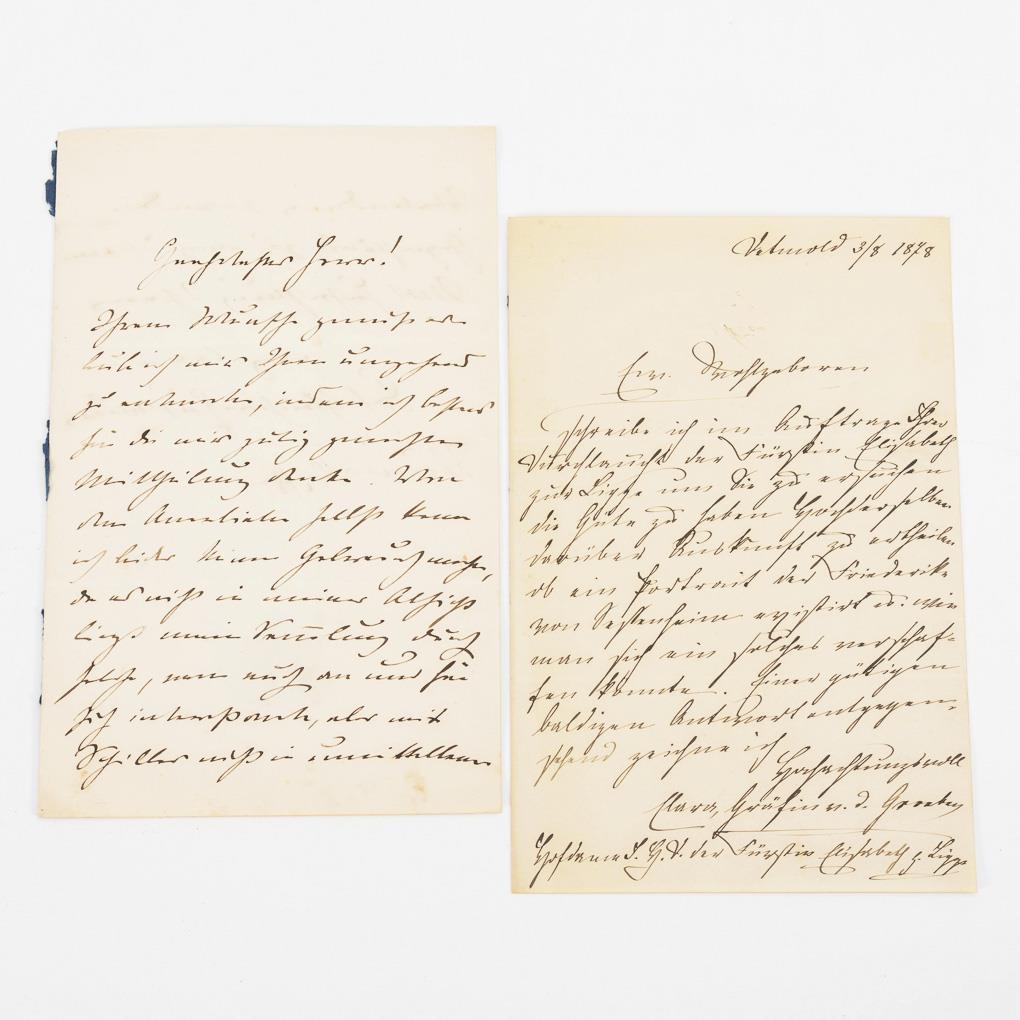 Geehrtester Herr!
Ihrem Wunsche gemäß er-
laube ich mir Ihnen umgehend
zu antworten, indem ich bestens
für die mir gütig gemachte
Mittheilung danke. Von
dem Anerbieten selbst kann
ich leider keinen Gebrauch machen,
da es nicht in meiner Absicht
liegt meine Sammlung durch
solche, wenn auch an und für
sich interessante, aber mit
Schiller nicht in unmittelbarer
Detmold 3/8 1878
Ew. Wohlgeboren
schreibe ich im Auftrage Ihrer
Durchlaucht der Fürstin Elisabeth
zur Lippe um Sie zu ersuchen
die Güte zu haben Hochderselben
darüber Auskunft zu ertheilen
ob ein Portrait der Friederike
von Sessenheim existirt u. wie
man sich ein solches verschaf-
fen könnte. Einer gütigen
baldigen Antwort entgegen-
sehend zeichne ich
Hochachtungsvoll
Clara, Gräfin v. d. Groeben
Hofdame I. H. D. der Fürstin Elisabeth z. Lippe